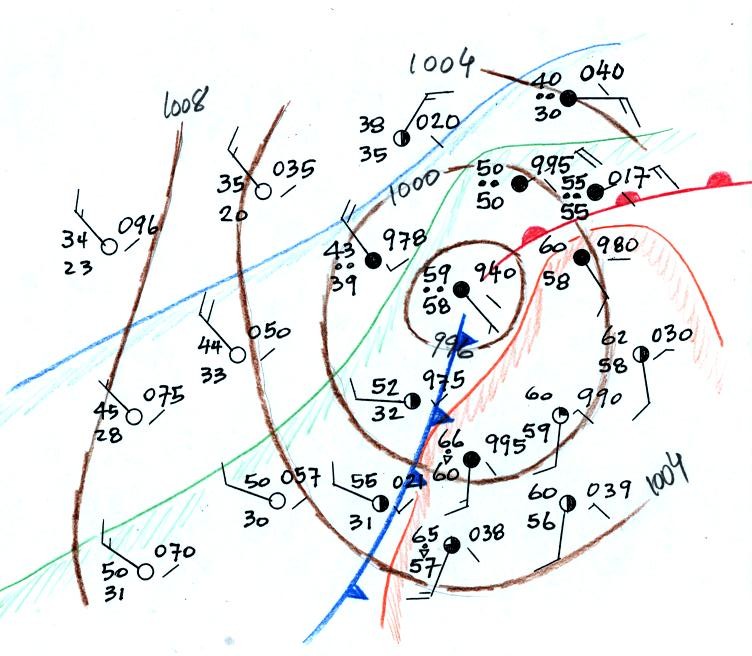 1004
40 040
30
1008
38 020
35
50 995
50
55 017
55
1000
35 035
20
34 096
23
43 978
39
60 980
58
59 940
58
996
44 050
33
62 030
58
52 975
32
45 075
28
60 990
59
66 995
60
50 057
30
55 021
31
60 039
56
1004
65 038
57
50 070
31